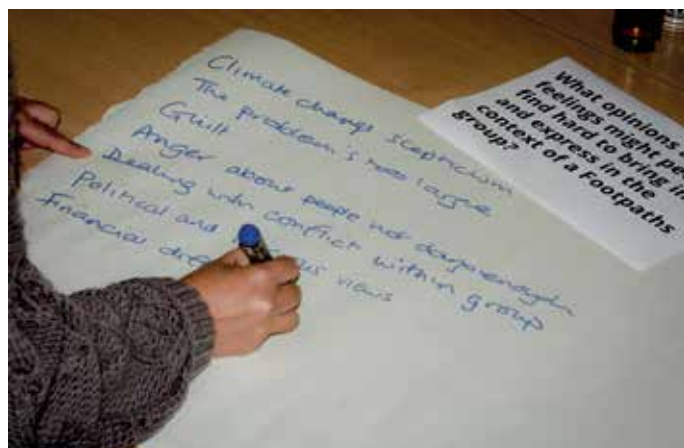 Climate change scepticism
The problem's too large
Guilt
Anger about people not doing enough
Dealing with conflict within group
Political and views
Financial
What opinions
feelings might
find hard to bring
and express in the
context of a Footpaths
group?